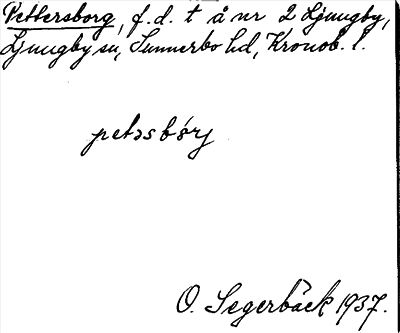 Pettersborg, f.d. t å nr 2 Ljungby,
Ljungby sn, Sunnerbo hd, Kronob. l.
petəsbórj
O. Segerbäck 1937.